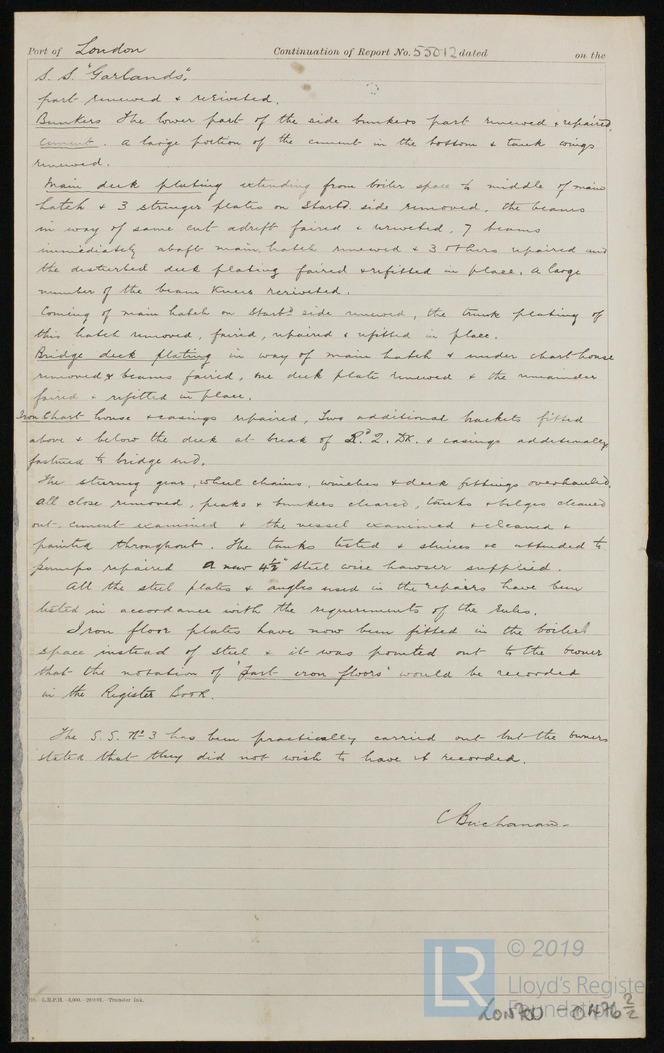 Port of London Continuation of Report No. 55012 dated on the
S. S. "Garlands".
part renewed & reriveted.
Bunkers The lower part of the side bunkers part renewed & repaired,
cement. A large portion of the cement in the bottom & tank wings
renewed.
Main deck plating extending from boiler space to middle of main
hatch & 3 stringer plates on Starbd. side removed, the beams
in way of same cut adrift faired & riveted, 7 beams
immediately abaft main hatch renewed & 3 others repaired and
the disturbed deck plating faired & refitted in place. A large
number of the beam knees reriveted.
Coming of main hatch on Starbd side renewed, the trunk plating of
this hatch removed, faired, repaired & refitted in place.
Bridge deck plating in way of main hatch & under chart house
removed & beams faired, one deck plate renewed & the remainder
faired & refitted in place.
Iron Chart house & casings repaired, Two additional brackets fitted
above & below the deck at break of Rd 2. Dk. & casings additionally
fastened to bridge end.
The steering gear, wheel chains, winches & deck fittings overhauled,
all close removed, peaks & bunkers cleared, tanks & bilges cleaned
out, cement examined & the vessel examined & cleaned &
painted throughout. The tanks tested & sluices &c attended to
pumps repaired a new 4½" steel wire hawser supplied.
All the steel plates & angles used in the repairs have been
tested in accordance with the requirements of the Rules.
Iron floor plates have now been fitted in the boiler
space instead of steel & it was pointed out to the owner
that the notation of 'Part iron floors' would be recorded
in the Register Book.
The S.S. No 3 has been practically carried out but the owners
stated that they did not wish to have it recorded.
C Buchanan
L.R.P.H.—3,000.— —Transfer Ink.
LR © 2019
Lloyd's Register
Foundation
LON700 - 0476 2/2